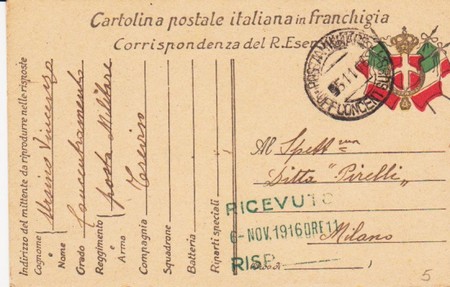 Cartolina postale italiana in franchigia
Corrispondenza del R. Eser
POSTA MILITARE
UFF. CONCEN
5.11.16
Indirizzo del mittente da riprodurre nelle risposte
Cognome e Nome
Grado
Reggimento
Arma
Compagnia
Squadrone
Batteria
Riparti speciali
Vincenzo
posta Militare
Treviso
Al Spett
Ditta "Pirelli"
Milano
RICEVUTO
6-NOV.1916 ORE 11
RISP.
5